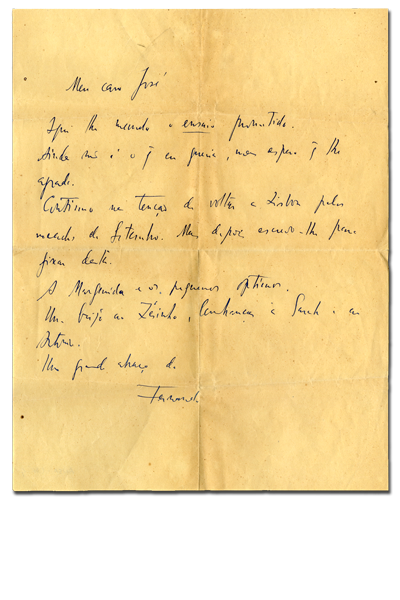 Meu caro José
Aqui lhe mando o ensaio prometido.
Ainda não é o q̃ eu queria, mas espero q̃ lhe
agrade.
Continuo na tenção de voltar a Lisboa pelos
meados de Setembro. Mas depois escrevo-lhe para
fixar data.
A Margarida e os pequenos óptimos.
Um beijo ao Zézinho, lembranças à Sarah e ao
Um grande abraço do
Fernando